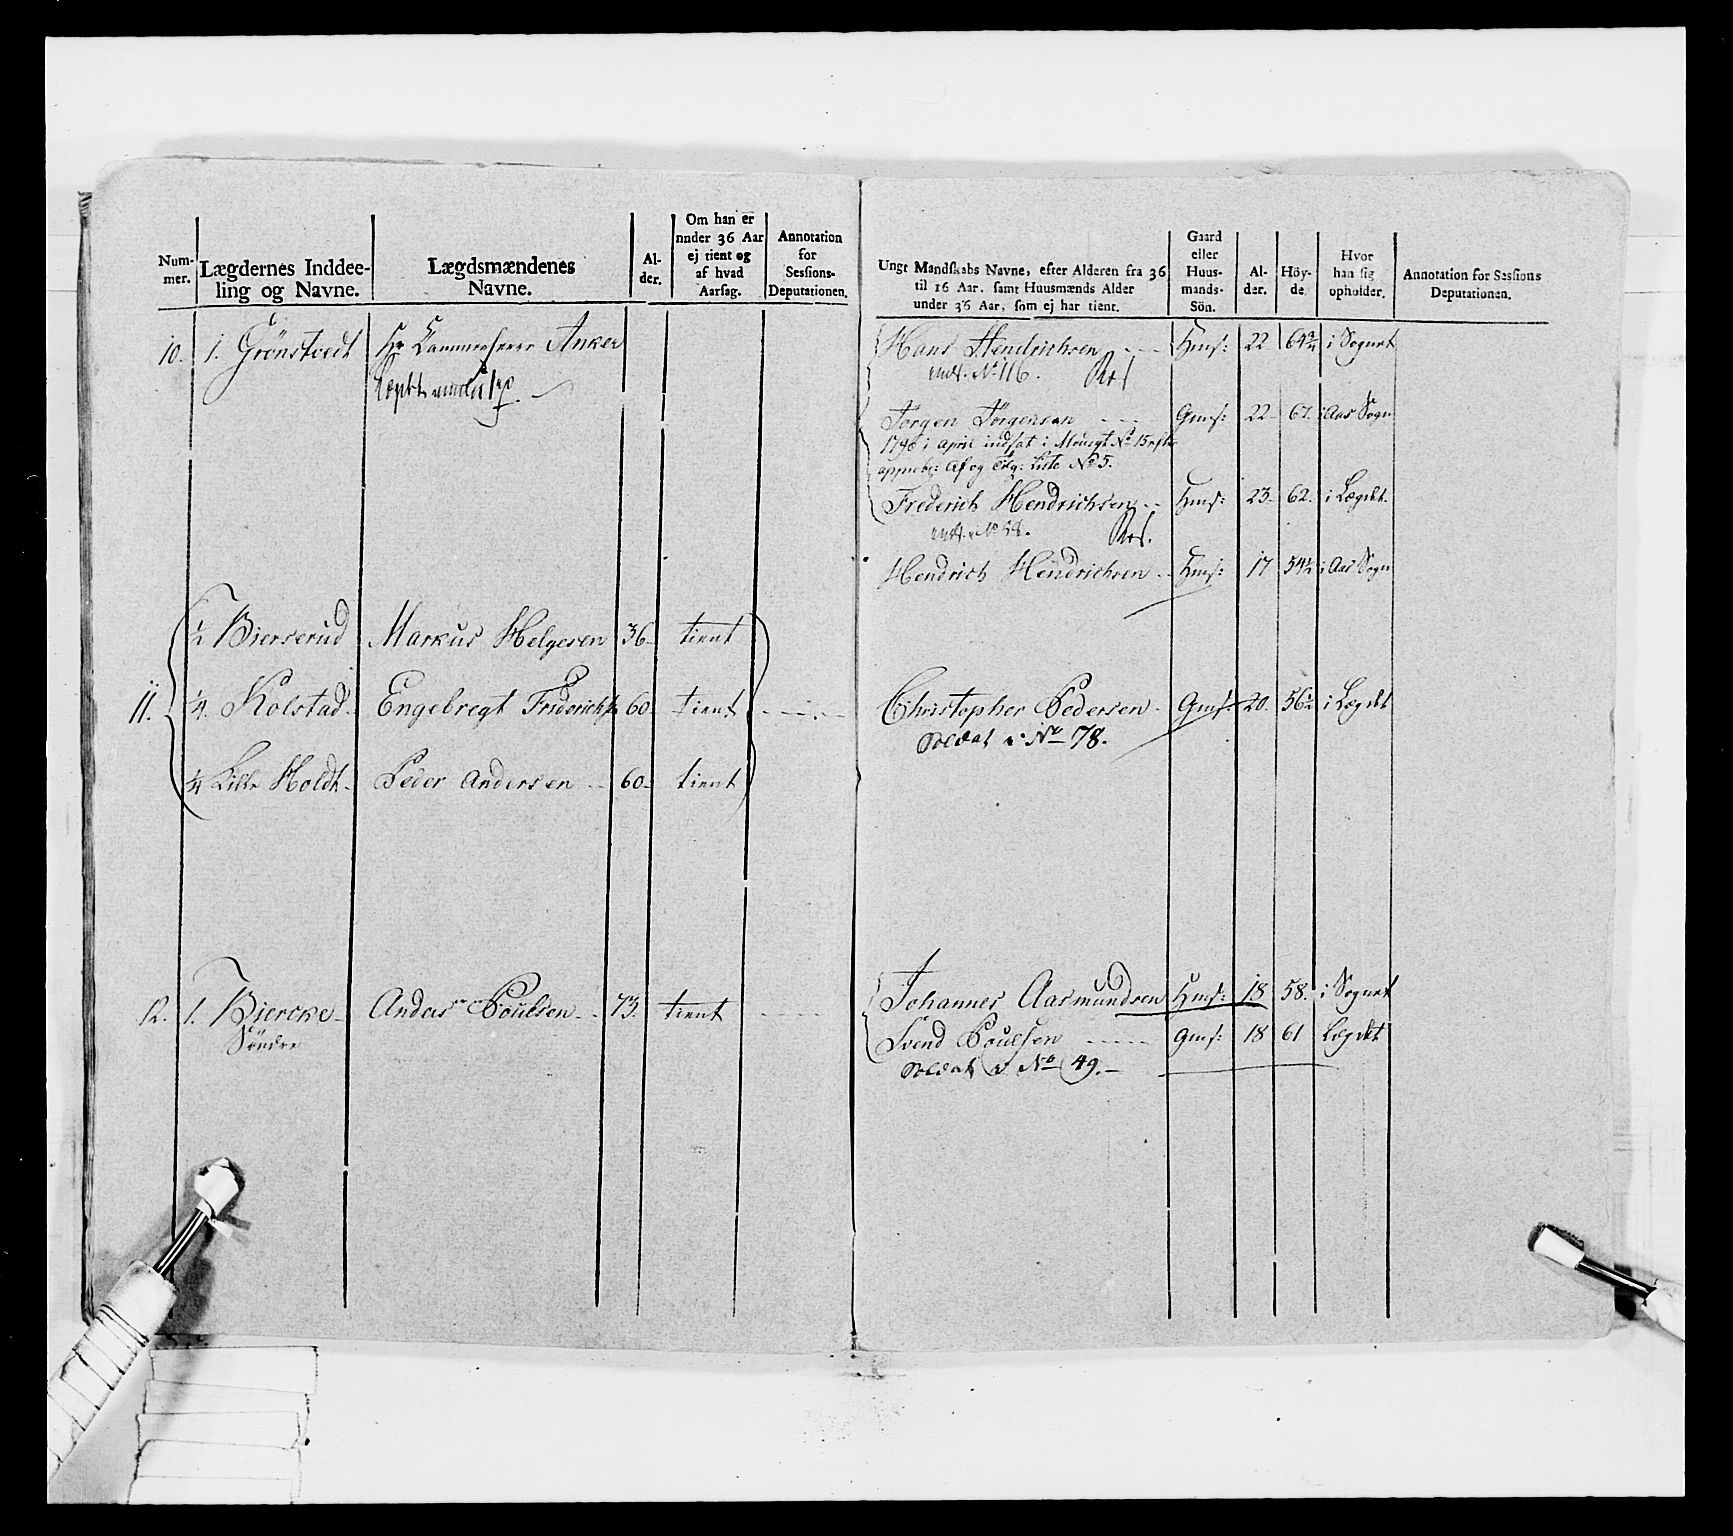 Num-
mer.
Lægdernes Inddee-
ling og Navne.
Lægdsmændenes
Navne.
Al-
der.
Om han er
nnder 36 Aar
ej tient og
af hvad
Aarsag.
Annotation
for
Sessions-
Deputationen.
10. 1. Grönstvedt Hr Cammerherre Anker
11. ½ Bierserud Markus Helgesen 36 tient
¼ Kolstad Engebregt Friderichs 60 tient
¼ Lille Holdt Peder Andersen 60 tient
12. 1. Biercke Anders Poulsen 73. tient
Söndre
Ungt Mandskabs Navne, efter Alderen fra 36
til 16 Aar, samt Huusmænds Alder
under 36 Aar, som ej har tient.
Gaard
eller
Huus-
mands-
Sön.
Al-
der.
Höy-
de.
Hvor
han sig
opholder.
Annotation for Sessions
Deputationen.
Hans Hendrichsen Hms: 22 64¾ i Sognet
No 116.
Jörgen Jörgensen Gms: 22 67. i Aas Sogn
1798 i April indsat i No 15
Af og Tilg: Liste No 5.
Frederich Hendrichsen Hms: 23 62. i Lægdet.
Hendrich Hendrichsen Hms: 17 54½ i Aas Sogn
Christopher Pedersen Gms: 20 56½ i Lægdet
Soldat i No 78.
Johannes Aasmundsen Hms: 18 58. i Sognet
Svend Poulsen Gms: 18 61 Lægdet
Soldat i No 49.